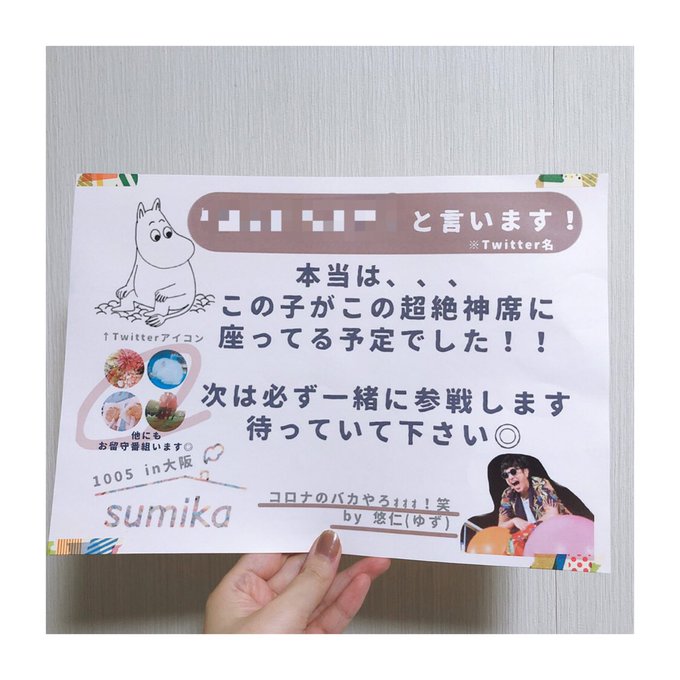 と言います！
※Twitter名
本当は、、、
この子がこの超絶神席に
座ってる予定でした！！
↑Twitterアイコン
次は必ず一緒に参戦します
待っていて下さい◎
他にも
お留守番組います◎
1005 in大阪
sumika
コロナのバカやろォォォ！笑
by 悠仁(ゆず)